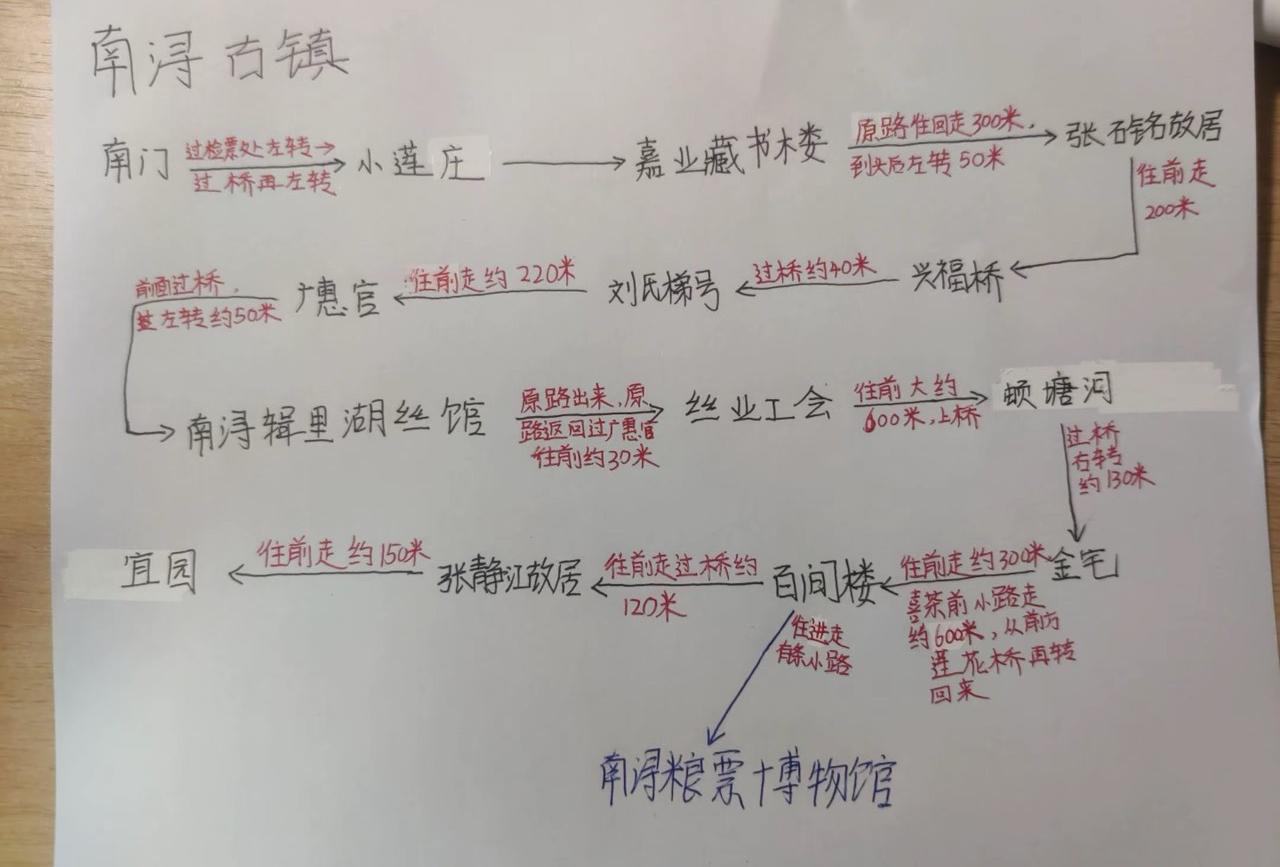 南浔古镇
南门
过检票处左转→
过桥再左转
小莲庄
嘉业藏书楼
原路往回走300米,
到头后左转50米
张石铭故居
往前走
200米
兴福桥
过桥约40米
刘氏梯号
往前走约220米
广惠宫
前面过桥,
左转约50米
南浔辑里湖丝馆
原路出来,原
路返回过广惠宫
往前约30米
丝业工会
往前大约
600米,上桥
頔塘河
过桥
右转
约130米
金宅
往前走约300米
喜茶前小路走
约600米,从前方
莲花桥再转
回来
百间楼
往前走过桥约
120米
张静江故居
往前走约150米
宜园
往进走
有条小路
南浔粮票博物馆